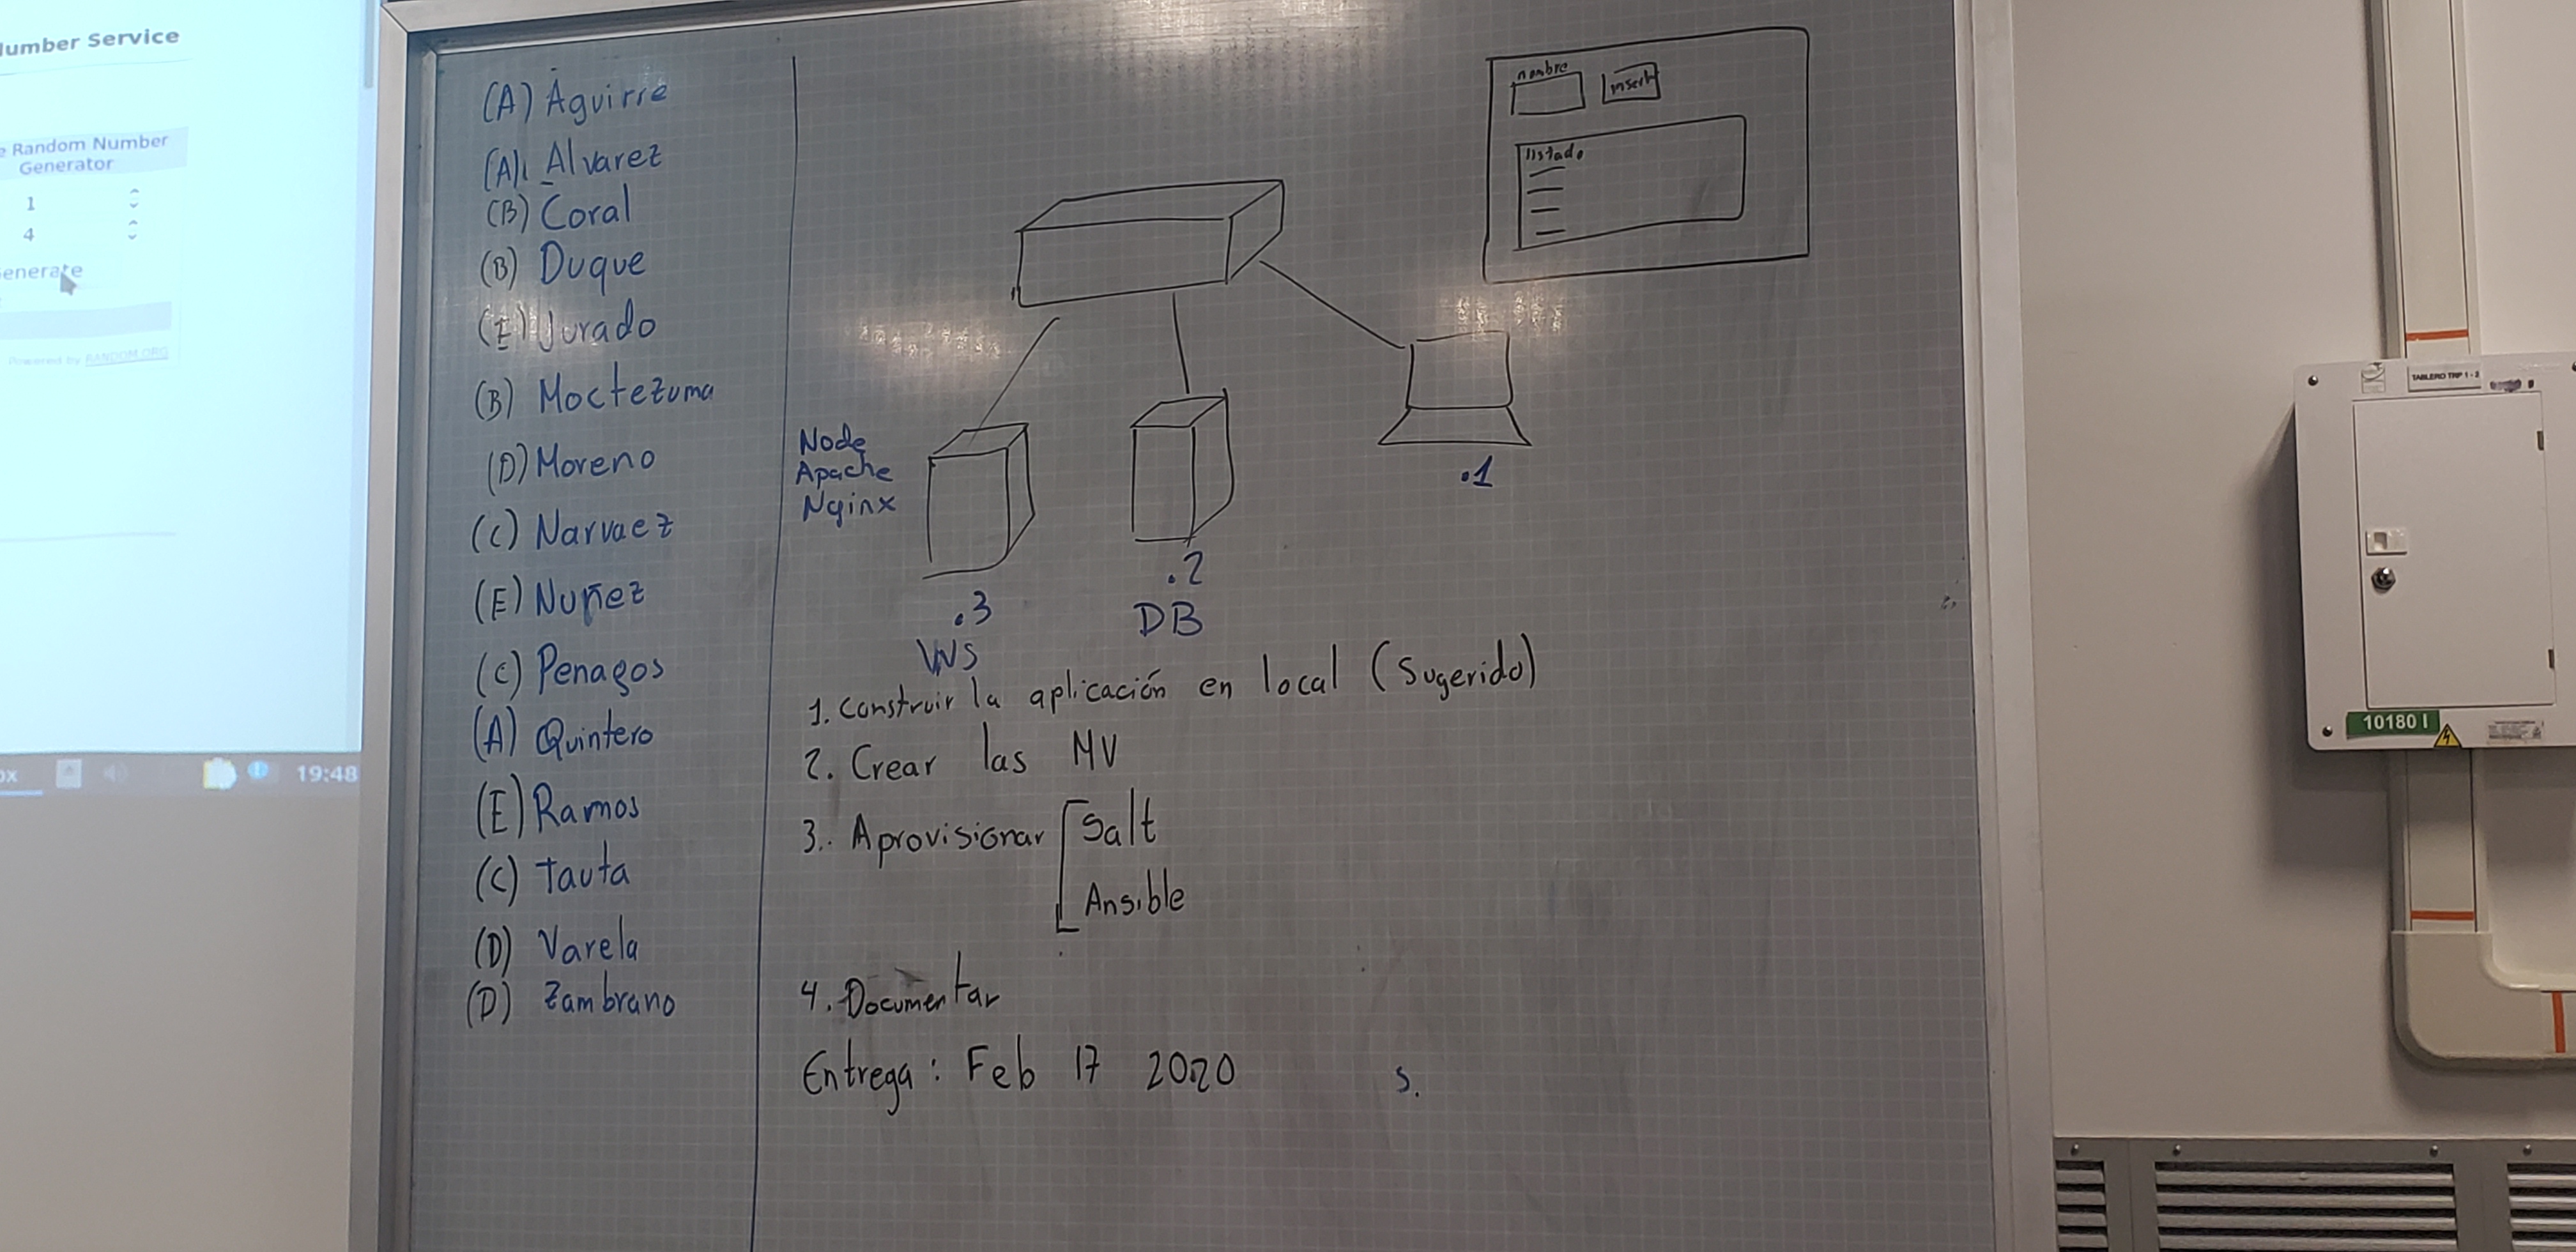 Number Service
Random Number
Generator
1
4
Generate
Powered by RANDOM.ORG
19:48
(A) Aguirre
(A) Alvarez
(B) Coral
(B) Duque
(E) Jurado
(B) Moctezuma
(D) Moreno
(C) Narvaez
(E) Nuñez
(C) Penagos
(A) Quintero
(E) Ramos
(C) Tauta
(D) Varela
(D) Zambrano
nombre
insert
listado
Node
Apache
Nginx
.1
.2
DB
.3
WS
1. Construir la aplicación en local (Sugerido)
2. Crear las MV
3. Aprovisionar
Salt
Ansible
4. Documentar
Entrega: Feb 17 2020
S.
TABLERO TRP 1 - 2
10180 I